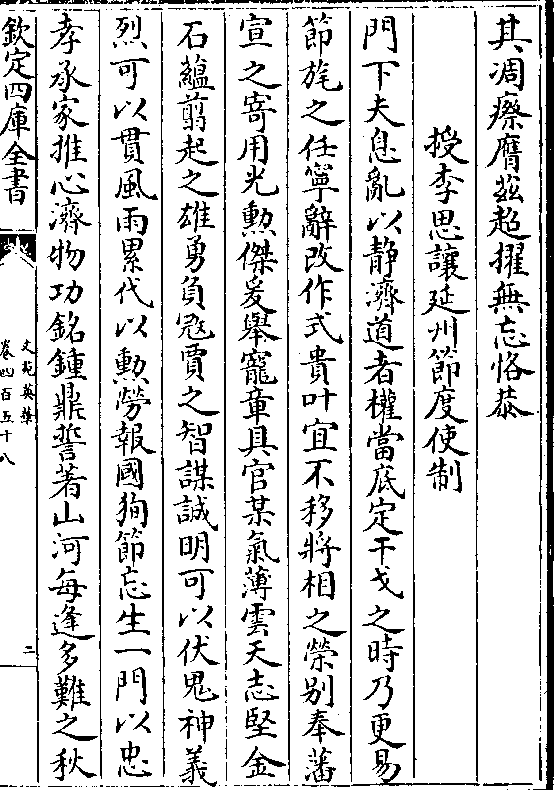 其凋瘵膺茲超擢無忘恪恭
授李思讓延州節度使制
門下夫息亂以静濟道者權當底定干戈之時乃更易
節旄之任寧辭改作式貴叶宜不移將相之榮别奉藩
宣之寄用光勲傑爰舉寵章具官某氣薄雲天志堅金
石蘊翦起之雄勇負冦賈之智謀誠明可以伏鬼神義
烈可以貫風雨累代以勲勞報國狥節忘生一門以忠
孝承家推心濟物功銘鍾鼎誓著山河每逢多難之秋
欽定四庫全書
文苑英華
卷四百五十八
二